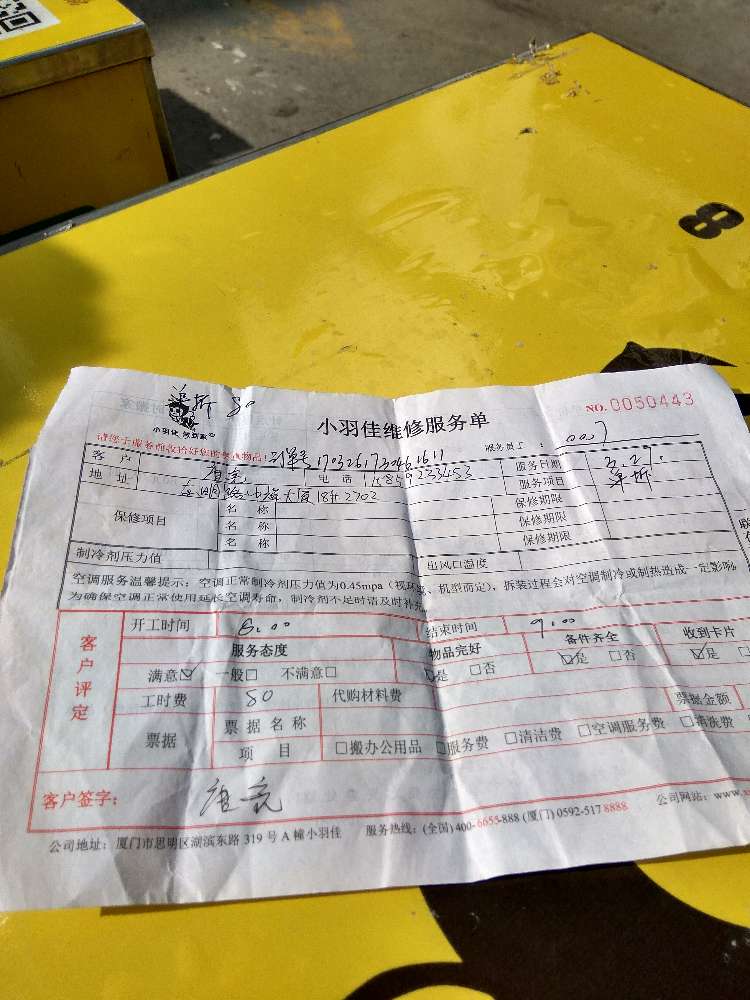 8
单拆 80
小羽佳维修服务单
NO.0050443
小羽佳
请您于服务前收拾好您的贵重物品!
订单号 17032617304616 11
服务员 : 0007
客 户 唐亮 电 话 服务日期 3.27.
地 址 18# 2702 服务项目 单拆
保修项目 名 称 保修期限
名 称 保修期限
名 称 保修期限
制冷剂压力值 出风口温度
空调服务温馨提示:空调正常制冷剂压力值为0.45mpa(视环境、机型而定),拆装过程会对空调制冷或制热造成一定影响
为确保空调正常使用延长空调寿命,制冷剂不足时请及时补充
客户评定
开工时间 8.00 结束时间 9.00
服务态度 物品完好 备件齐全 收到卡片
满意☑ 一般□ 不满意□ ☑是 □否 ☑是 □否 ☑是 □
工时费 80 代购材料费
票据 票据名称 票据金额
项 目 □搬办公用品 □服务费 □清洁费 □空调服务费 □清洗费
客户签字: 唐亮
公司地址:厦门市思明区湖滨东路 319 号 A 幢小羽佳 服务热线:(全国)400-6655-888 (厦门) 0592-517 8888 公司网站:www.x